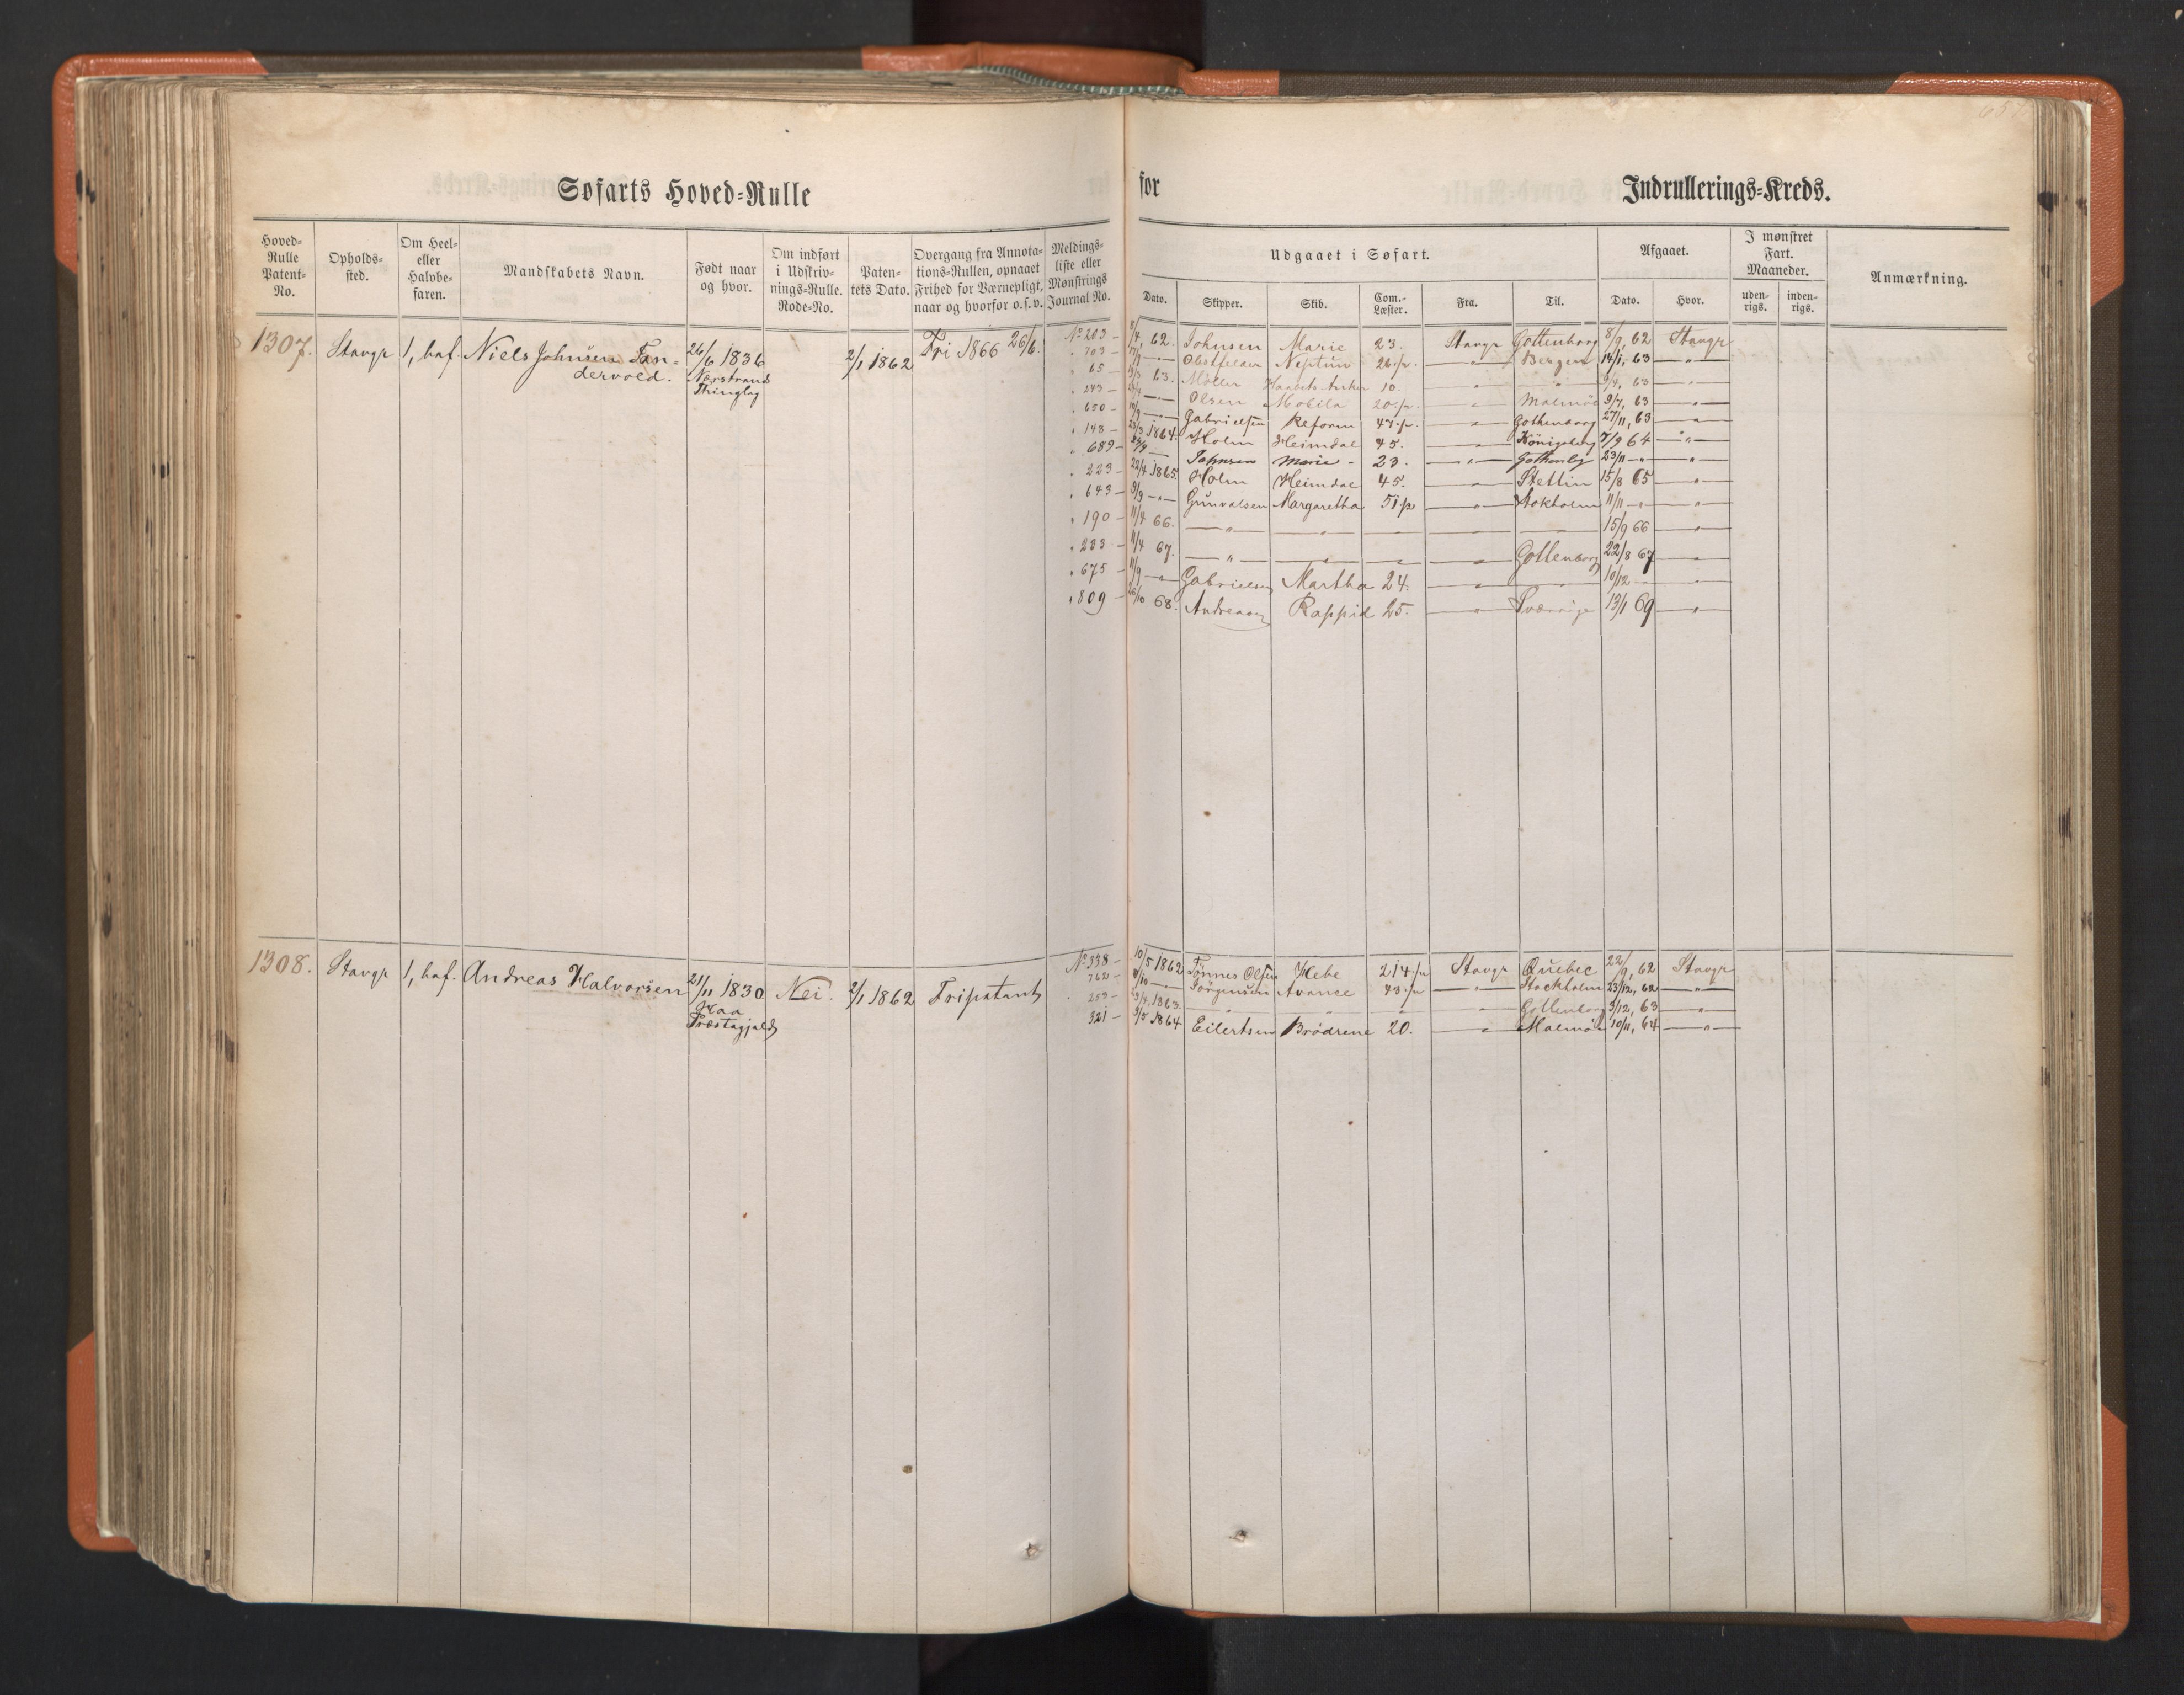 Søfarts Hoved-Rulle
for
Indrullerings-Kreds.
Hoved-Rulle Patent-No.
Opholds-sted.
Om Heel- eller Halvbe-faren.
Mandskabets Navn.
Født naar og hvor.
Om indført i Udskriv-nings-Rulle. Rode-No.
Paten-tets Dato.
Overgang fra Annota-tions-Rullen, opnaaet Frihed for Værnepligt, naar og hvorfor o.s.v.
Meldings-liste eller Mønstrings Journal No.
Udgaaet i Søfart.
Afgaaet.
I mønstret Fart. Maaneder.
Anmærkning.
Dato. Skipper. Skib. Com.-Læster. Fra. Til. Dato. Hvor. uden-rigs. inden-rigs.
1307. Stavgr 1, haf. Niels Johnsen Tan-
dervold.
26/6 1836
Nærstrands
Thinglag
2/1 1862
Fri 1866 26/6.
No 203 – 8/4, 62. Johnsen Marie 23. Stavgr Gottenborg 8/9, 62 Stavgr
" 703 – Obstfelder Neptun 26.p. — " — Bergen 14/1, 63 — " —
" 65 – 63. Möller Haabets Anker 10. " " 9/4, 63 — " —
" 243 – — " — Olsen Mobila 20.p. " Malmöe 9/7, 63 — " —
" 650 – — " — Gabrielsen Reform 47.p. " Gothenborg 27/11, 63 "
" 148 – 23/3 1864. Holm Heimdal 45. " Königsberg 7/9 64 — " —
" 689 – Johnsen Marie – 23. — " — Gothenbg 23/11 — " — "
" 223 – 22/4 1865. Holm Heimdal 45. " Stettin 15/8 65 "
" 643 – 9/9 — " — Gunvalsen Margaretha 51.p " Stokholm 11/11 — " — "
" 190 – 11/4 66. — " — " — " — 15/9 66 "
" 233 – 11/4 67. — " — " — " Gottenborg 22/8 67 "
" 675 – 11/9 — " Gabrielsen Martha 24. " — 10/12 — "
" 809 – 26/10 68. Andreasen Rappid 25. " Sverrige 13/1 69 "
1308. Stavgr 1, haf. Andreas Halvorsen
21/11 1830
Haa
Præstegjeld
Nei. 2/1 1862 Fripatent
No 338 – 10/5 1862 Tønnes Olsen Hebe 214.p Stavgr Quebec 22/9, 62 Stavgr
" 762 – Jörgensen Avance 43.p — " — Stockholm 23/12, 62 "
" 253 – 1863. " " " " Gottenborg 3/12, 63 "
321 – 3/5 1864 Eilertsen Brödrene 20. " Malmöe 10/11, 64 — " —